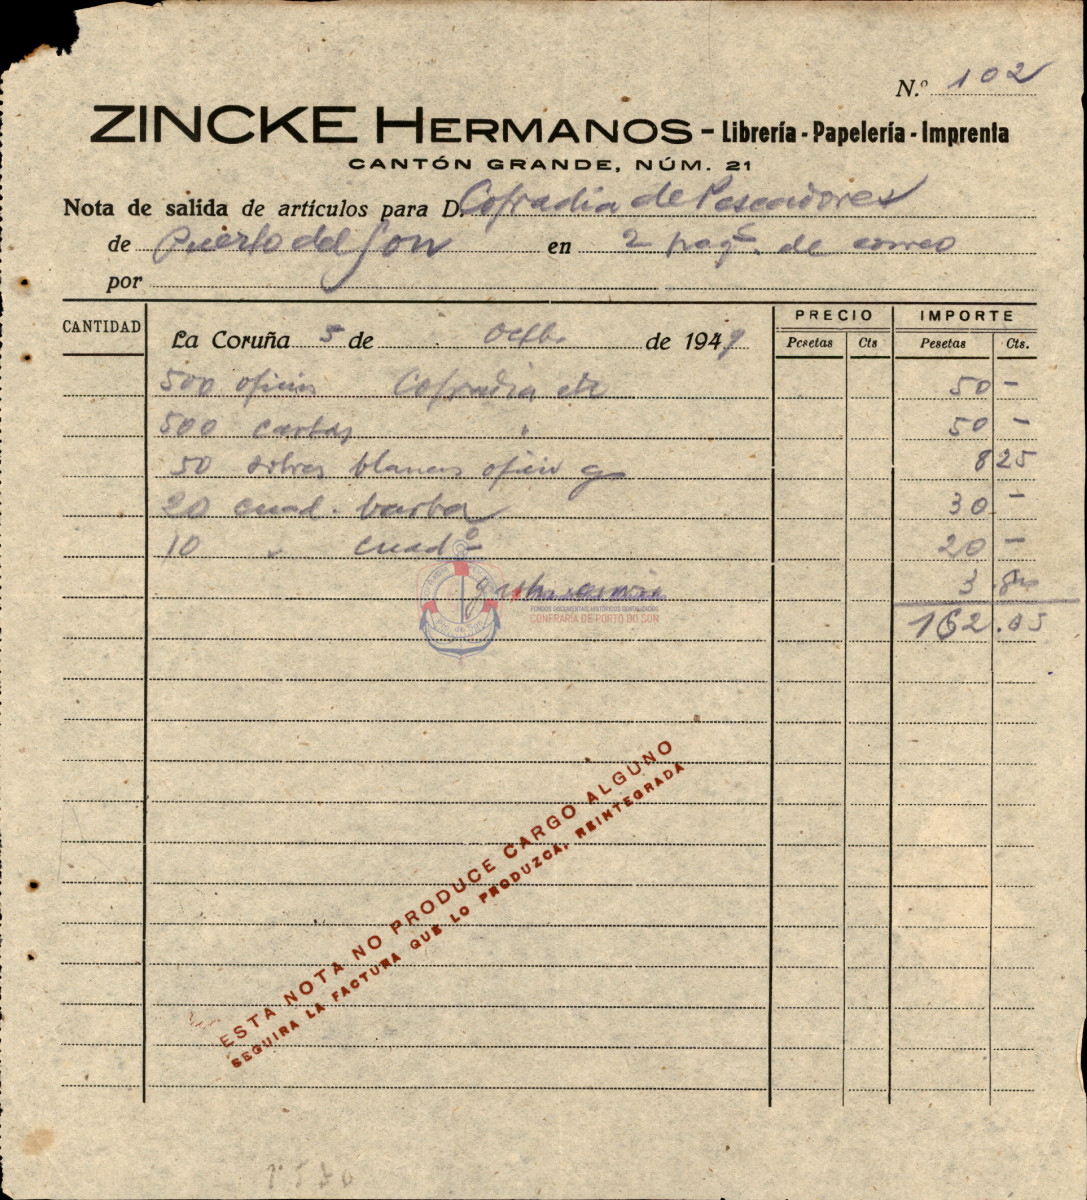 N.º 102
ZINCKE HERMANOS - Librería - Papelería - Imprenta
CANTÓN GRANDE, NÚM. 21
Nota de salida de artículos para D. Cofradia de Pescadores
de Puerto del Son en 2 paqs. de correo
por
CANTIDAD La Coruña 5 de Octb. de 1949 PRECIO IMPORTE
Pesetas Cts Pesetas Cts.
500 oficios Cofradia etc 50 -
500 cartas " 50 -
50 sobres blancos oficio 8 25
20 cuad. barba 30 -
10 " cuadº 20 -
3 .80
FONDOS DOCUMENTAIS HISTÓRICOS DIXITALIZADOS
CONFRARÍA DE PORTO DO SON
162.05
ESTA NOTA NO PRODUCE CARGO ALGUNO
SEGUIRA LA FACTURA QUE LO PRODUZCA, REINTEGRADA